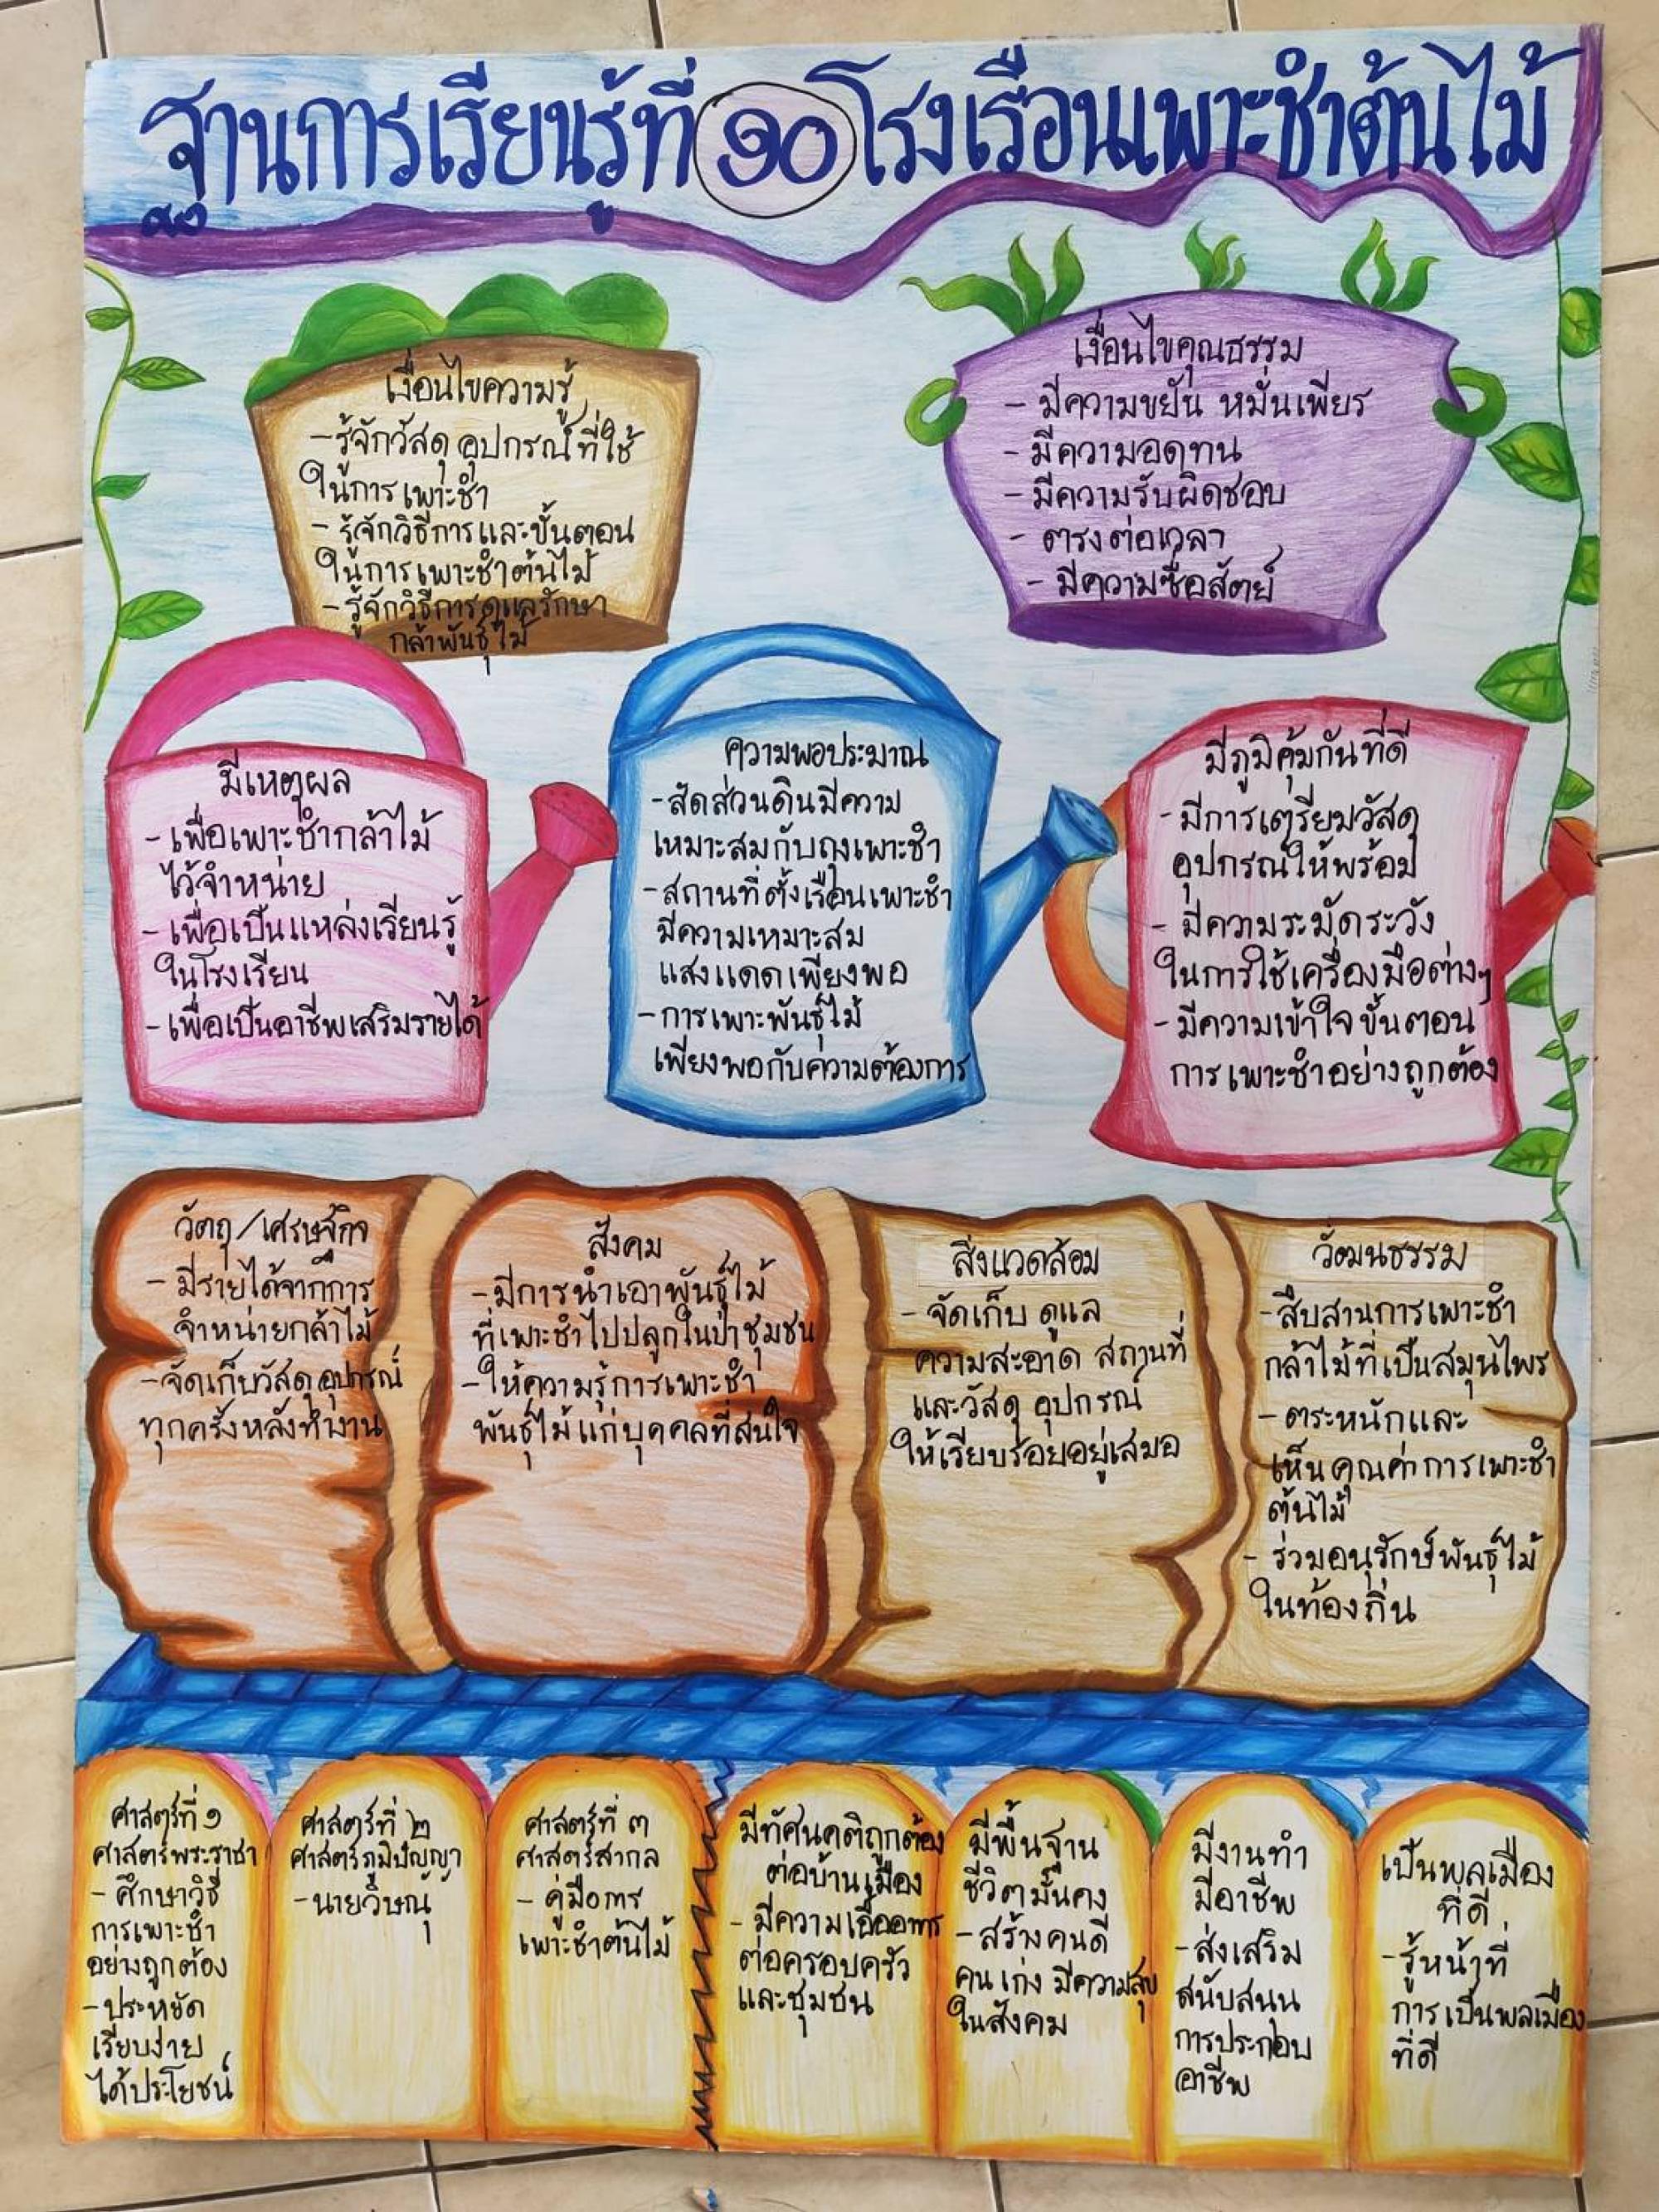 ฐานการเรียนรู้ที่ ๑๐ โรงเรือนเพาะชำต้นไม้
เงื่อนไขความรู้
- รู้จักวัสดุ อุปกรณ์ที่ใช้
ในการเพาะชำ
- รู้จักวิธีการและขั้นตอน
ในการเพาะชำต้นไม้
- รู้จักวิธีการดูแลรักษา
กล้าพันธุ์ไม้
เงื่อนไขคุณธรรม
- มีความขยัน หมั่นเพียร
- มีความอดทน
- มีความรับผิดชอบ
- ตรงต่อเวลา
- มีความซื่อสัตย์
มีเหตุผล
- เพื่อเพาะชำกล้าไม้
ไว้จำหน่าย
- เพื่อเป็นแหล่งเรียนรู้
ในโรงเรียน
- เพื่อเป็นอาชีพเสริมรายได้
ความพอประมาณ
- สัดส่วนดินมีความ
เหมาะสมกับถุงเพาะชำ
- สถานที่ตั้งเรือนเพาะชำ
มีความเหมาะสม
แสงแดดเพียงพอ
- การเพาะพันธุ์ไม้
เพียงพอกับความต้องการ
มีภูมิคุ้มกันที่ดี
- มีการเตรียมวัสดุ
อุปกรณ์ให้พร้อม
- มีความระมัดระวัง
ในการใช้เครื่องมือต่างๆ
- มีความเข้าใจขั้นตอน
การเพาะชำอย่างถูกต้อง
วัตถุ/เศรษฐกิจ
- มีรายได้จากการ
จำหน่ายกล้าไม้
- จัดเก็บวัสดุ อุปกรณ์
ทุกครั้งหลังทำงาน
สังคม
- มีการนำเอาพันธุ์ไม้
ที่เพาะชำไปปลูกในป่าชุมชน
- ให้ความรู้การเพาะชำ
พันธุ์ไม้แก่บุคคลที่สนใจ
สิ่งแวดล้อม
- จัดเก็บ ดูแล
ความสะอาด สถานที่
และวัสดุ อุปกรณ์
ให้เรียบร้อยอยู่เสมอ
วัฒนธรรม
- สืบสานการเพาะชำ
กล้าไม้ที่เป็นสมุนไพร
- ตระหนักและ
เห็นคุณค่าการเพาะชำ
ต้นไม้
- ร่วมอนุรักษ์พันธุ์ไม้
ในท้องถิ่น
ศาสตร์ที่ ๑
ศาสตร์พระราชา
- ศึกษาวิธี
การเพาะชำ
อย่างถูกต้อง
- ประหยัด
เรียบง่าย
ได้ประโยชน์
ศาสตร์ที่ ๒
ศาสตร์ภูมิปัญญา
- นายวิษณุ
ศาสตร์ที่ ๓
ศาสตร์สากล
- คู่มือการ
เพาะชำต้นไม้
มีทัศนคติถูกต้อง
ต่อบ้านเมือง
- มีความเอื้ออาทร
ต่อครอบครัว
และชุมชน
มีพื้นฐาน
ชีวิตมั่นคง
- สร้างคนดี
คนเก่ง มีความสุข
ในสังคม
มีงานทำ
มีอาชีพ
- ส่งเสริม
สนับสนุน
การประกอบ
อาชีพ
เป็นพลเมือง
ที่ดี
- รู้หน้าที่
การเป็นพลเมือง
ที่ดี